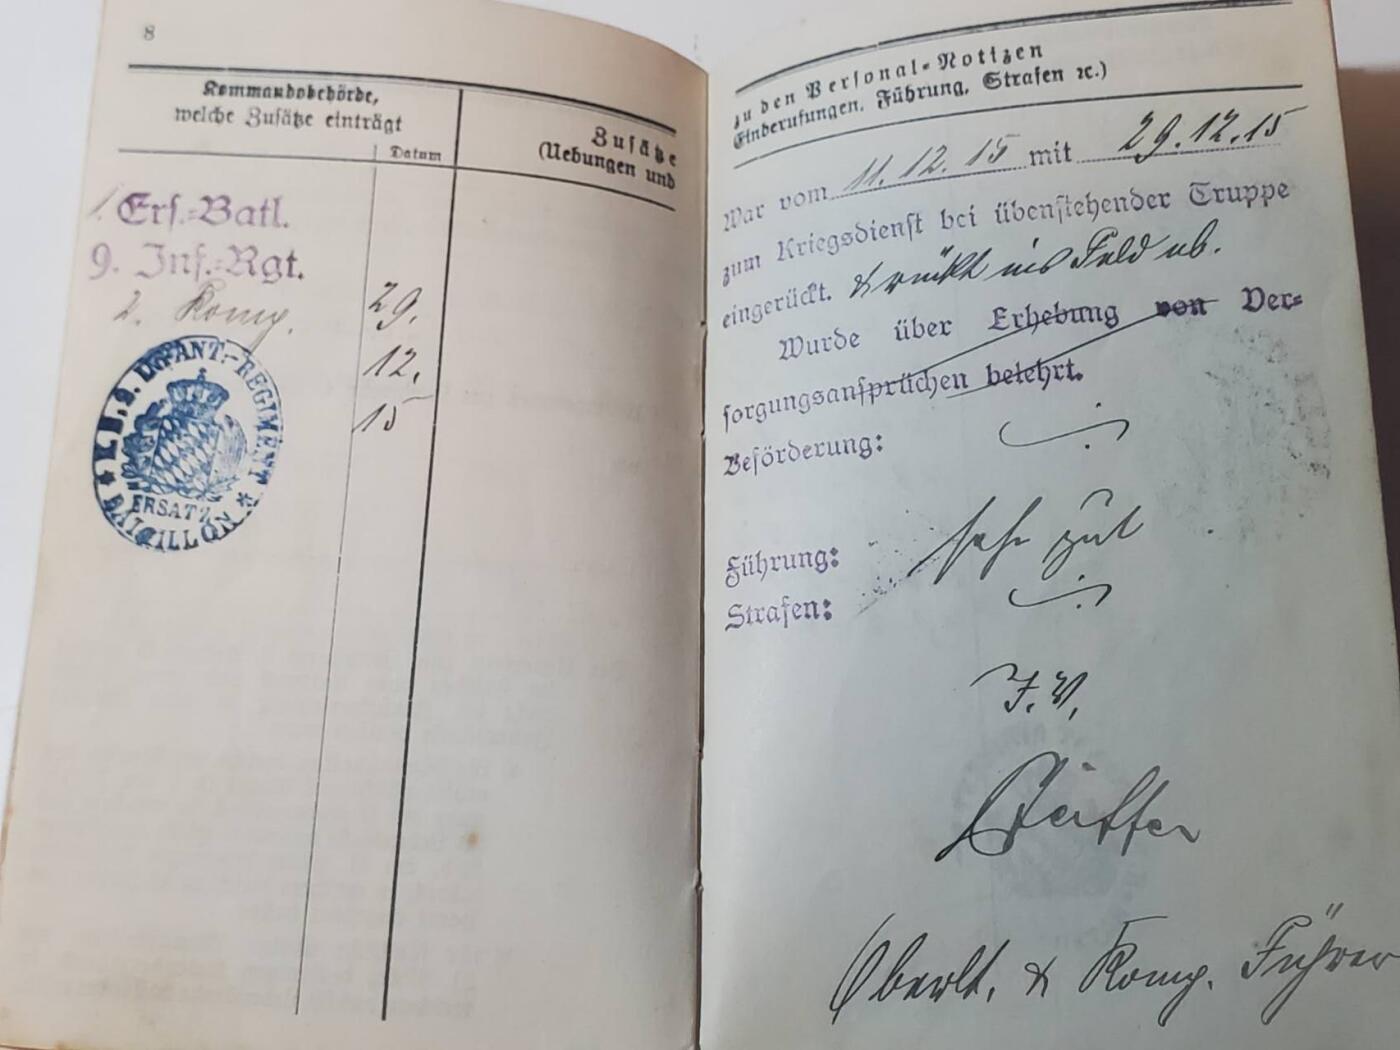 8
Kommandobehörde,
welche Zusätze einträgt
Datum
Zusätze
(Uebungen und
1. Ers.=Batl.
9. Inf.=Rgt.
2. Komp.
29.
12.
15
K.B. 9. INFANT.-REGIMENT
ERSATZ
BATAILLON
zu den Personal=Notizen
Einberufungen, Führung, Strafen ꝛc.)
War vom 11.12.15 mit 29.12.15
zum Kriegsdienst bei übenstehender Truppe
eingerückt. & rückt ins Feld ab.
Wurde über Erhebung von Ver=
sorgungsansprüchen belehrt.
Beförderung:
Führung: sehr gut
Strafen:
I.V.
Oberlt. & Komp. Führer